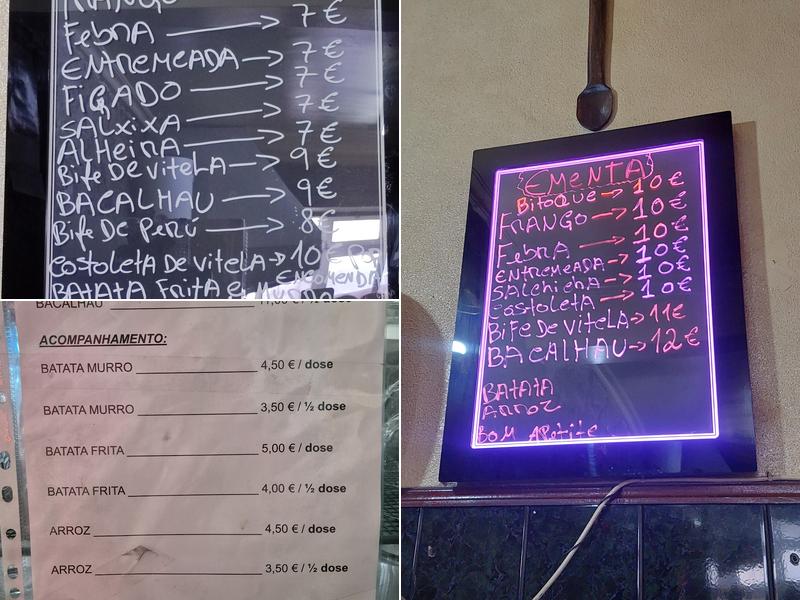 FRANGO
FebRA → 7 €
ENTREMEADA → 7 €
FIGADO → 7 €
SALXIXA → 7 €
ALHEIRA → 7 €
BifE DE VITELA → 9 €
BACALHAU → 9 €
Bife De PERU → 8 €
COSTOLETA DE VITELA → 10 € POR ENCOMENDA
BATATA FRITA e MURRO
BACALHAU
ACOMPANHAMENTO:
BATATA MURRO 4,50 € / dose
BATATA MURRO 3,50 € / ½ dose
BATATA FRITA 5,00 € / dose
BATATA FRITA 4,00 € / ½ dose
ARROZ 4,50 € / dose
ARROZ 3,50 € / ½ dose
{EMENTA}
BitoQUE → 10 €
FRANGO → 10 €
FebRA → 10 €
ENTREMEADA → 10 €
SALChichA → 10 €
COSTOLETA → 10 €
BIFE DE VITELA → 11 €
BACALHAU → 12 €
BATATA
ARROZ
BOM APetite